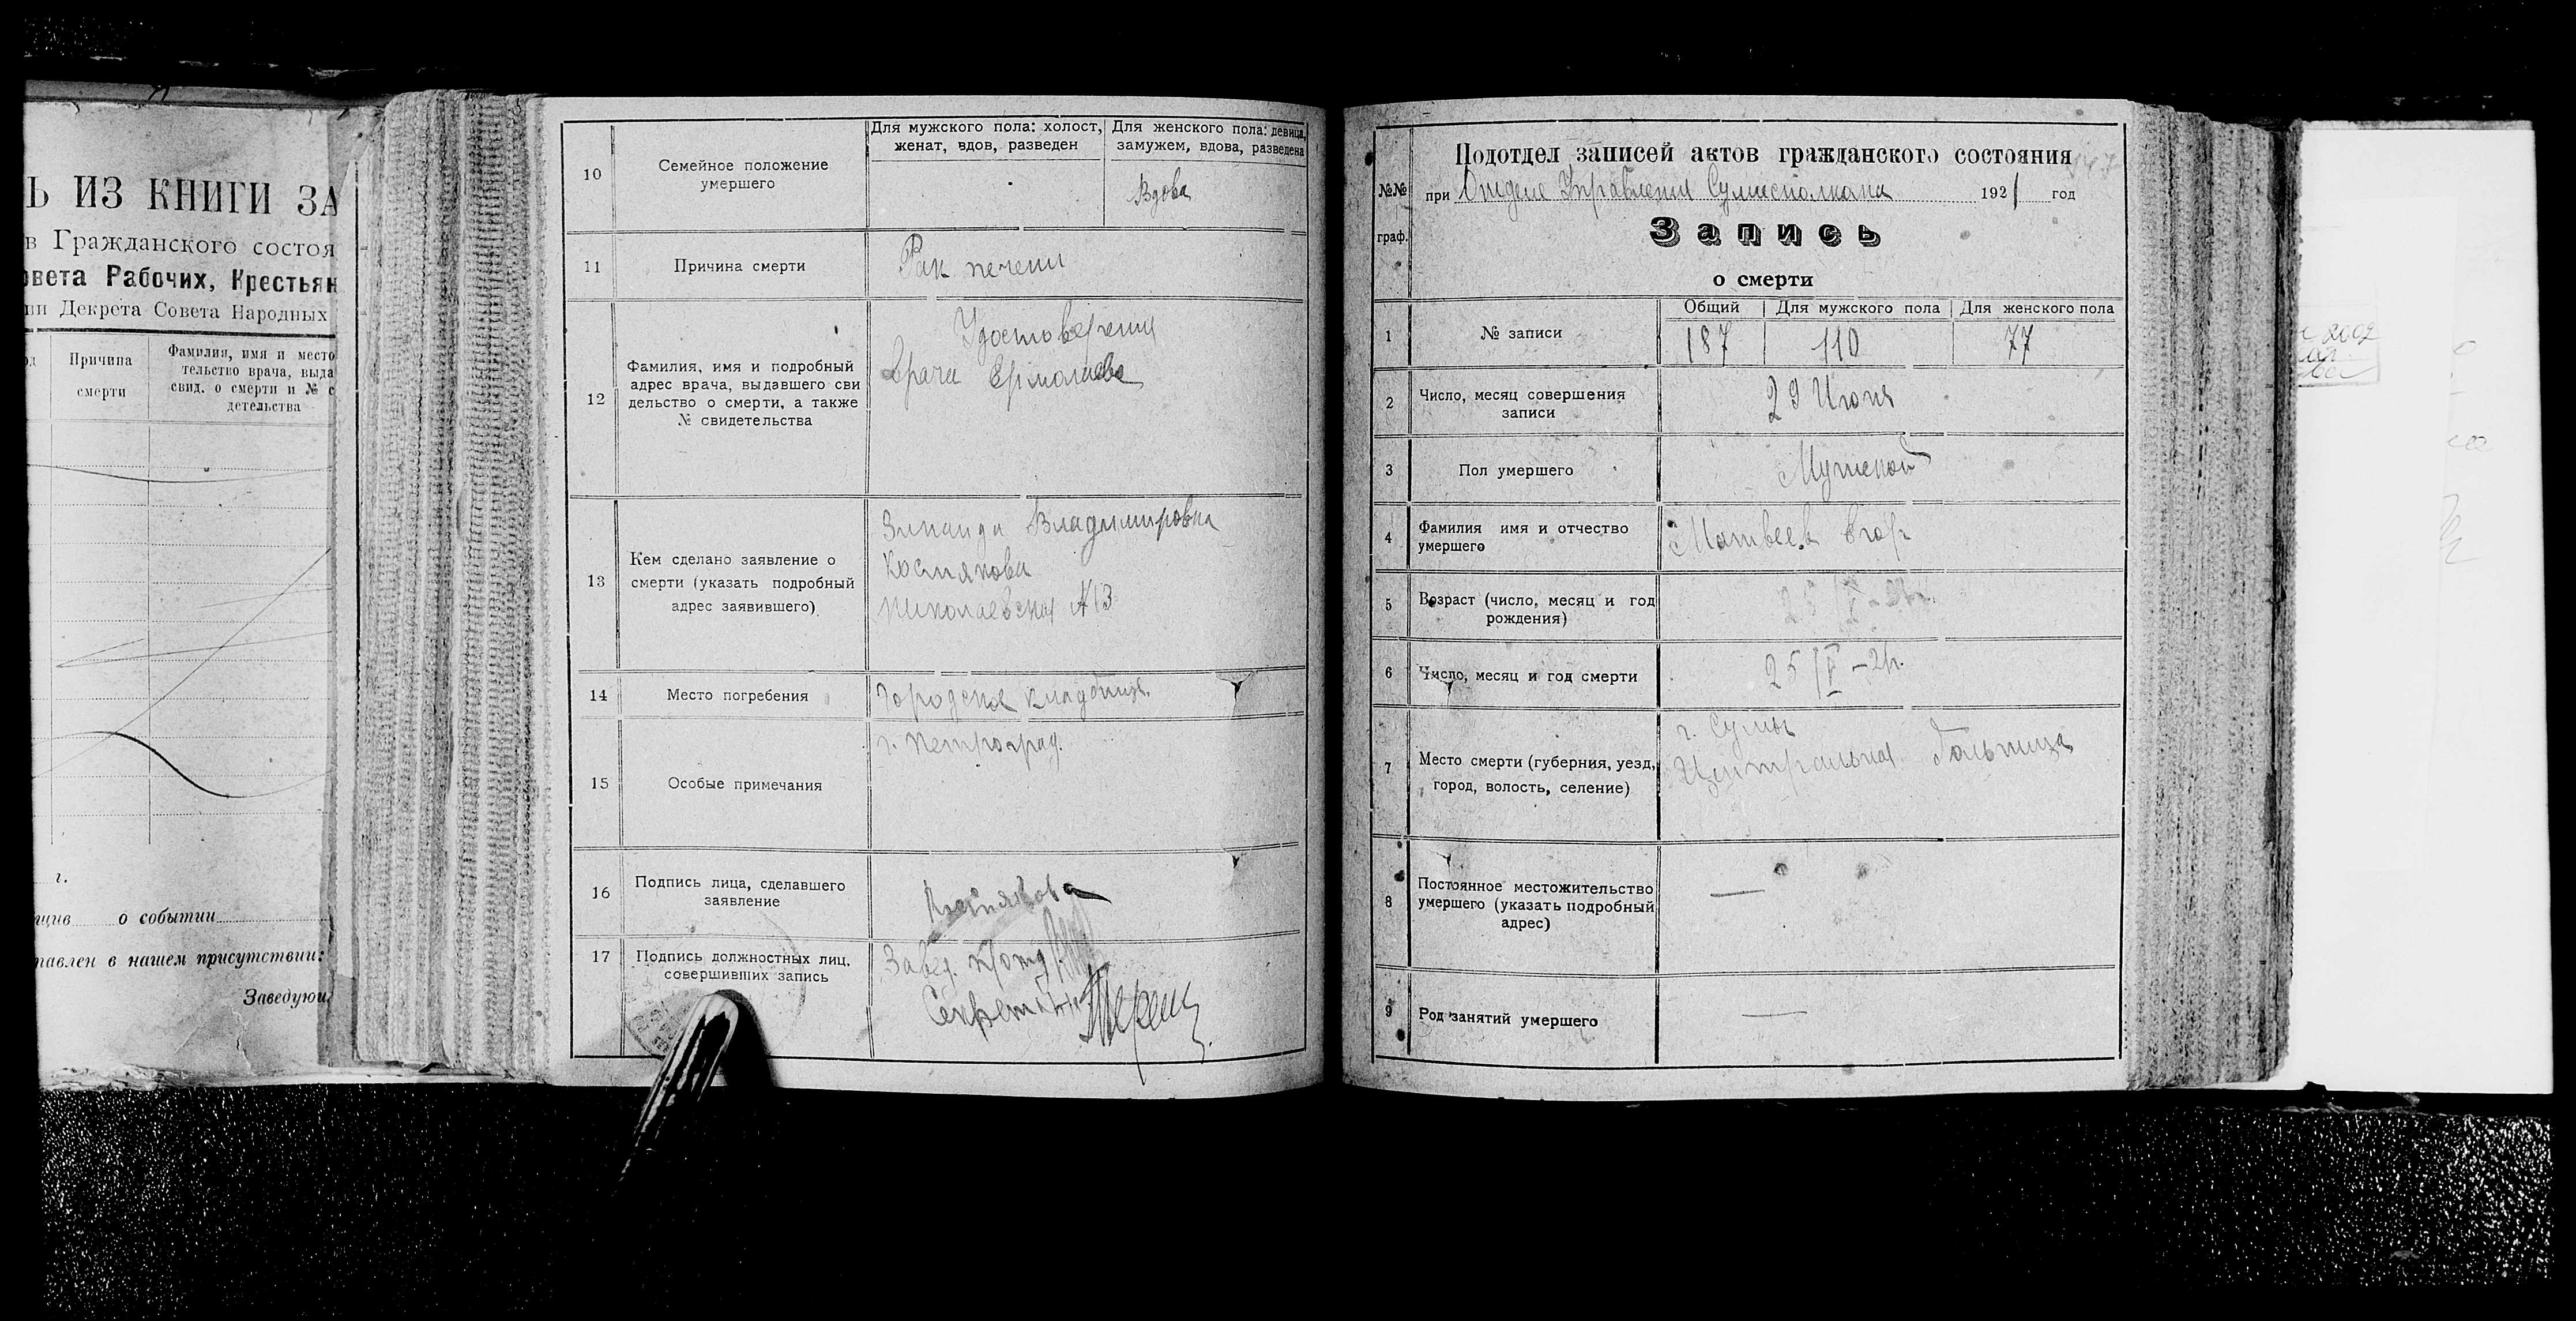 Ь ИЗ КНИГИ ЗА
в Гражданского состоя
овета Рабочих, Крестьян
ии Декрета Совета Народных
Причина
смерти
Фамилия, имя и место
тельство врача, выда
свид. о смерти и № с
детельства
г.
о событии
тавлен в нашем присутствии:
Заведую
10
Семейное положение
умершего
Для мужского пола: холост,
женат, вдов, разведен
Для женского пола: девица,
замужем, вдова, разведена
Вдова
11
Причина смерти
Рак печени
12
Фамилия, имя и подробный
адрес врача, выдавшего сви
дельство о смерти, а также
№ свидетельства
Удостоверения
врача Ермолаева
13
Кем сделано заявление о
смерти (указать подробный
адрес заявившего)
Зинаида Владимировна
Костякова
Николаевская №13
14
Место погребения
Городское кладбище
15
Особые примечания
г. Петроград.
16
Подпись лица, сделавшего
заявление
Костякова
17
Подпись должностных лиц,
совершивших запись
Завед.
Секретарь
№№
граф.
Подотдел записей актов гражданского состояния
при Отделе Управления Сумисполкома 1921 год
Запись
о смерти
1
№ записи
Общий
Для мужского пола
Для женского пола
187
110
77
2
Число, месяц совершения
записи
29 Июня
3
Пол умершего
Мужской
4
Фамилия имя и отчество
умершего
Матвеев Егор
5
Возраст (число, месяц и год
рождения)
6
Число, месяц и год смерти
25/V-21г.
7
Место смерти (губерния, уезд,
город, волость, селение)
г. Сумы
Центральная больница
8
Постоянное местожительство
умершего (указать подробный
адрес)
—
9
Род занятий умершего
—